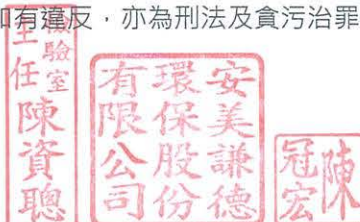 如有違反，亦為刑法及貪污治罪
檢驗室
主任陳資聰
安美謙德
環保股份
有限公司
陳
冠宏